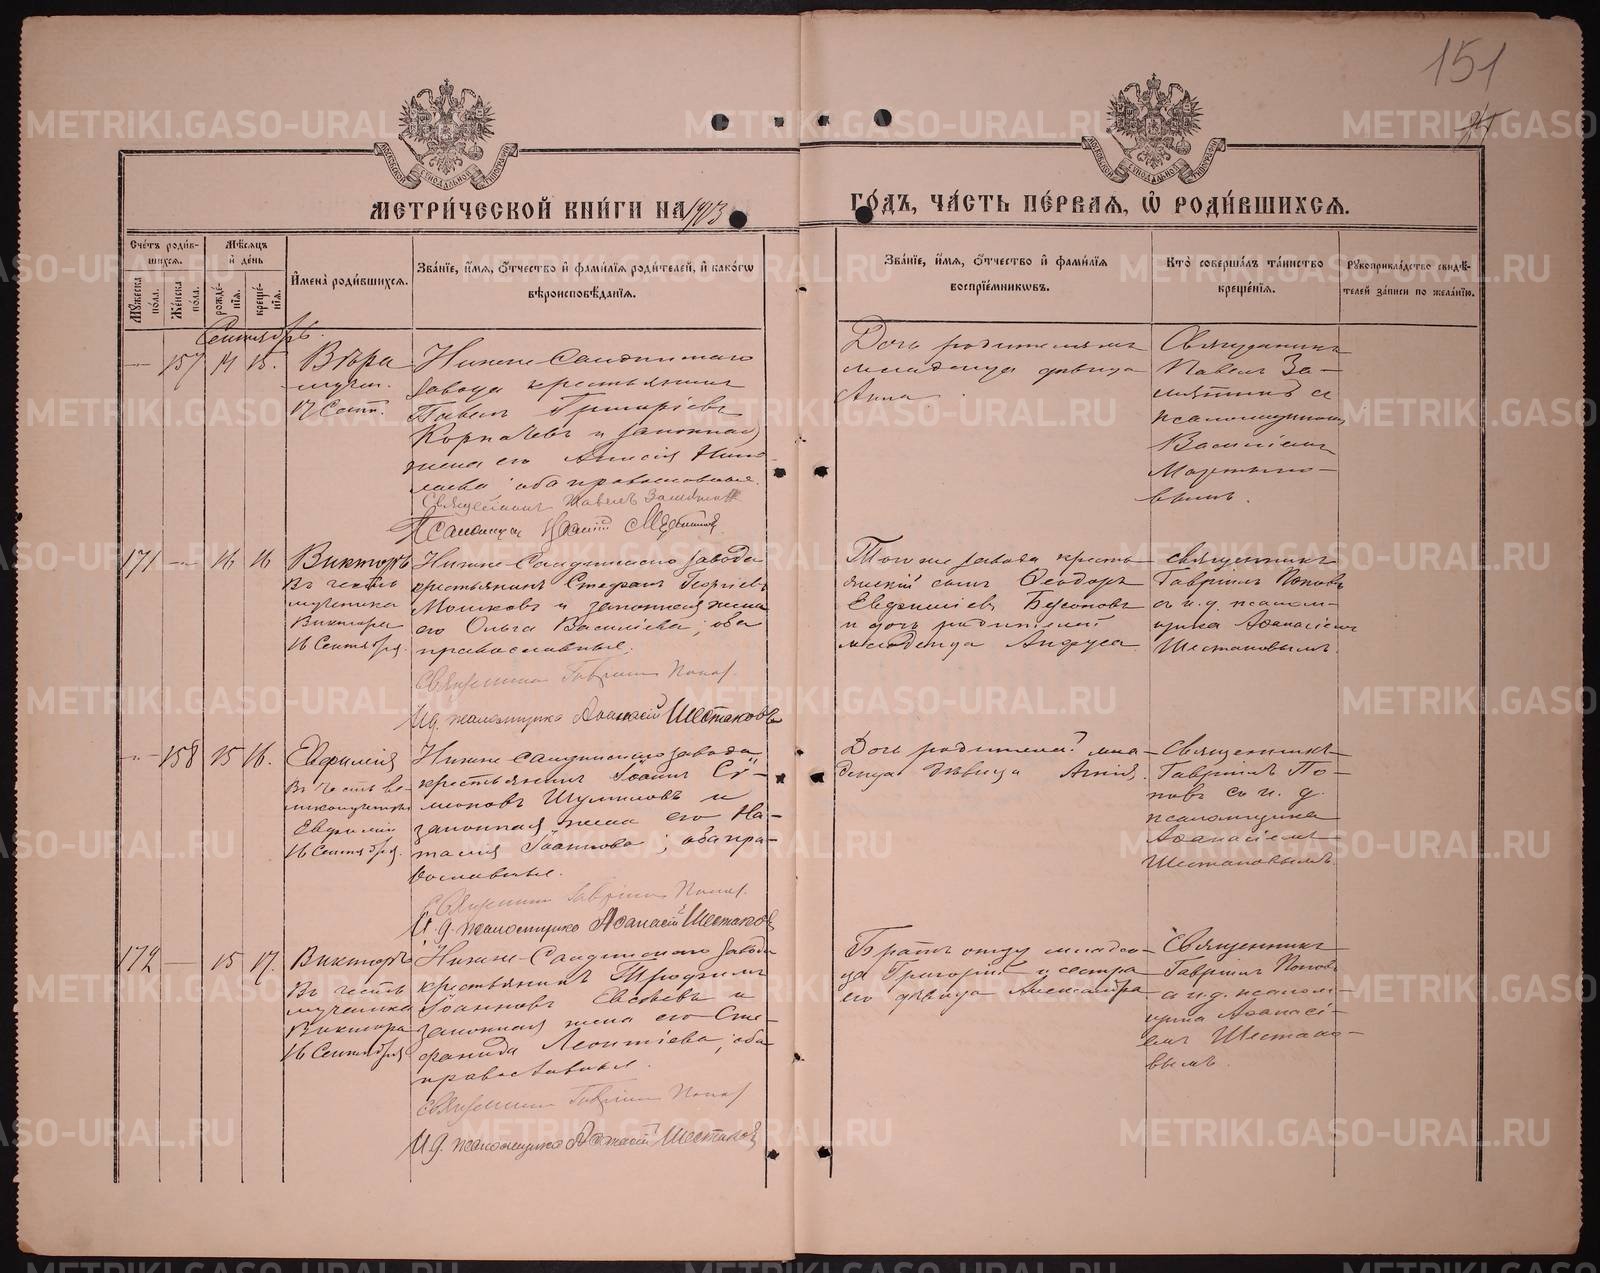 151
МЕТРИ́ЧЕСКОЙ КНИ́ГИ НА 1913
ГО́ДЪ, ЧА́СТЬ ПЕ́РВАЯ, Ѿ РОДИ́ВШИХСЯ.
Сче́тъ роди́в-
шихся.
Мѣ́сяцъ
и́ де́нь
Мꙋ́жеска по́ла.
Же́нска по́ла.
рожде́-
нїя.
креще́-
нїя.
И҆мена̀ роди́вшихся.
Зва́нїе, и҆́мя, ѻ҆́тчество и҆ фами́лїя роди́телей, и҆ како́гѡ
вѣроисповѣ́данїя.
Зва́нїе, и҆́мя, ѻ҆́тчество и҆ фами́лїя
воспрїе́мникѡвъ.
Кто̀ соверша́лъ та́инство
креще́нїя.
Рꙋкоприкла́дство свидѣ́-
телей за́писи по жела́нїю.
Сентябрь.
157 14 15.
Вѣра
мучен.
17 Сент.
Нижне-Салдинскаго
завода крестьянинъ
Павелъ Григоріевъ
и законная
жена его Анисія Нико-
лаева оба православные.
Священникъ Павелъ Замятинъ
Псаломщикъ
Дочь родителямъ
младенца дѣвица
Анна
Священникъ
Павелъ За-
мятинъ съ
псаломщикомъ
Василіемъ
Мартыно-
вымъ.
171 16 16
Викторъ
Въ честь
мученика
Виктора
16 Сентября.
Нижне-Салдинскаго завода
крестьянинъ Стефанъ Георгіевъ
и законная жена
его Ольга Васильева; оба
православные.
Священникъ Гавріилъ Поповъ.
И. д. псаломщика Аѳанасій Шестаковъ
Того же завода кресть-
янскій сынъ Ѳеодоръ
Евфиміевъ
и дочь родителей
младенца
Священникъ
Гавріилъ Поповъ
съ и. д. псалом-
щика Аѳанасіемъ
Шестаковымъ.
158 15 16.
Евфимія
Въ честь ве-
ликомученицы
Евфиміи
16 Сентября.
Нижне-Салдинскаго завода
крестьянинъ Іоаннъ Сѵ-
меоновъ Шумиловъ и
законная жена его На-
талія Іоаннова; оба пра-
вославные.
Священникъ Гавріилъ Поповъ.
И. д. псаломщика Аѳанасій Шестаковъ
Дочь родителей мла-
денца дѣвица
Священникъ
Гавріилъ По-
повъ съ и. д.
псаломщика
Аѳанасіемъ
Шестаковымъ.
172 15 17.
Викторъ
Въ честь
мученика
Виктора
16 Сентября
Нижне-Салдинскаго завода
крестьянинъ Трофимъ
Іоанновъ Евсѣевъ и
законная жена его Сте-
фанида Леонтіева; оба
православные.
Священникъ Гавріилъ Поповъ
И. д. псаломщика Аѳанасій Шестаковъ
Братъ отцу младен-
ца Григорій и сестра
его дѣвица Александра
Священникъ
Гавріилъ Поповъ
съ и. д. псалом-
щика Аѳанасі-
емъ Шестако-
вымъ.
METRIKI.GASO-URAL.RU